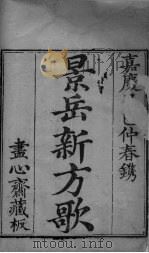 嘉慶 仲春鐫
景岳新方歌
盡心齋藏板
mtoou.info